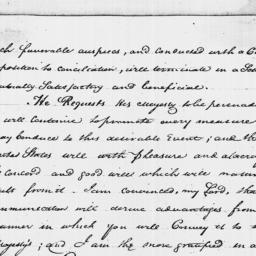 ch favorable auspices, and conducted with a C
position to conciliation, will terminate in a
mutually Satisfactory and beneficial.
He Requests His Majesty to be persuad
will continue to promote every measure
ay Conduce to this desirable Event; and th
States will with pleasure and alacr
Concord and good will which will
ult from it. I am convinced, my Lord, tha
mmunication will derive advantages from
anner in which you will Convey it to
ajesty; and I am the more gratified in a